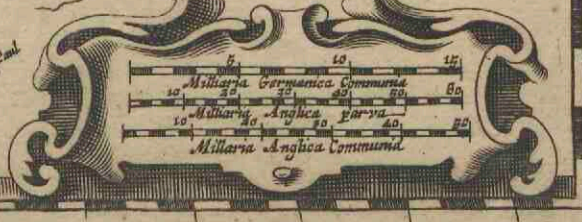 5 10 15
Milliaria Germanica Communia
10 20 30 40 50 60
Milliaria Anglica parva
10 20 30 40 50
Millaria Anglica Communia